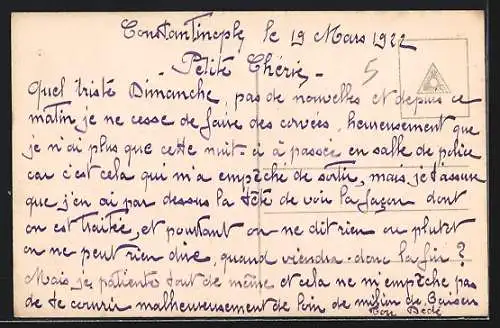 Constantinople le 19 Mars 1922
Petite Chérie,
5
Quel triste Dimanche, pas de nouvelles et depuis ce
matin je ne cesse de faire des corvées, heureusement que
je n'ai plus que cette nuit-ci à passer en salle de police
car c'est cela qui m'a empêché de sortir, mais je t'assure
que j'en ai par dessus la tête de voir la façon dont
on est traitée, et pourtant on ne dit rien ou plutôt
on ne peut rien dire, quand viendra-donc la fin ?
Mais je patiente tout de même et cela ne m'empêche pas
de te couvrir malheureusement de loin de million de Baisers
Ton Dédé